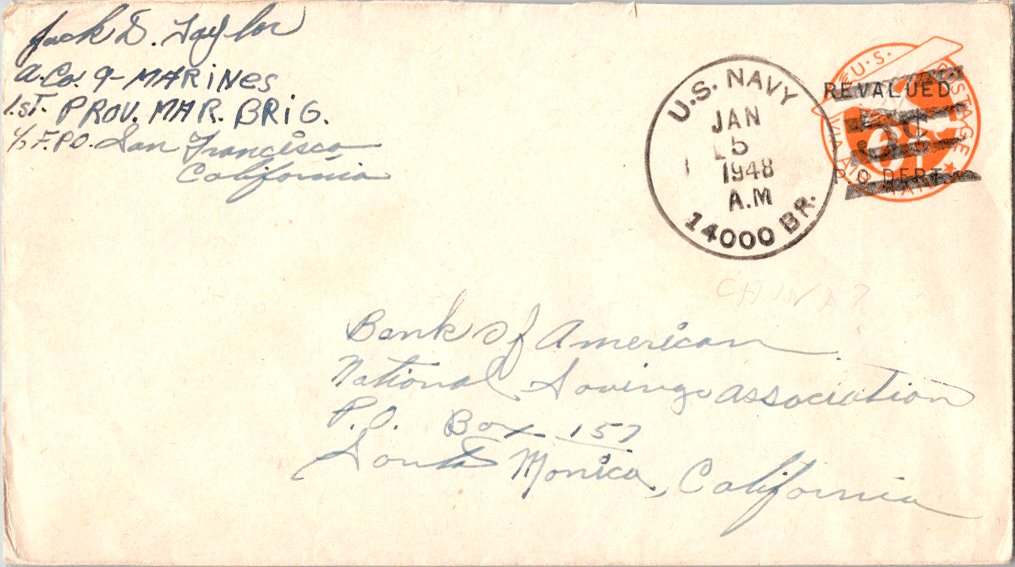 Jack D. Taylor
A. Co. 9- MARINES
1.ST. PROV. MAR. BRIG.
℅ F.P.O. San Francisco
California
U.S. NAVY
JAN
5
1948
A.M
14000 BR.
U.S. POSTAGE
REVALUED
5¢
P.O. DEPT.
CHINA?
Bank of American
National Savings Association
P.O. Box 157
Santa Monica, California